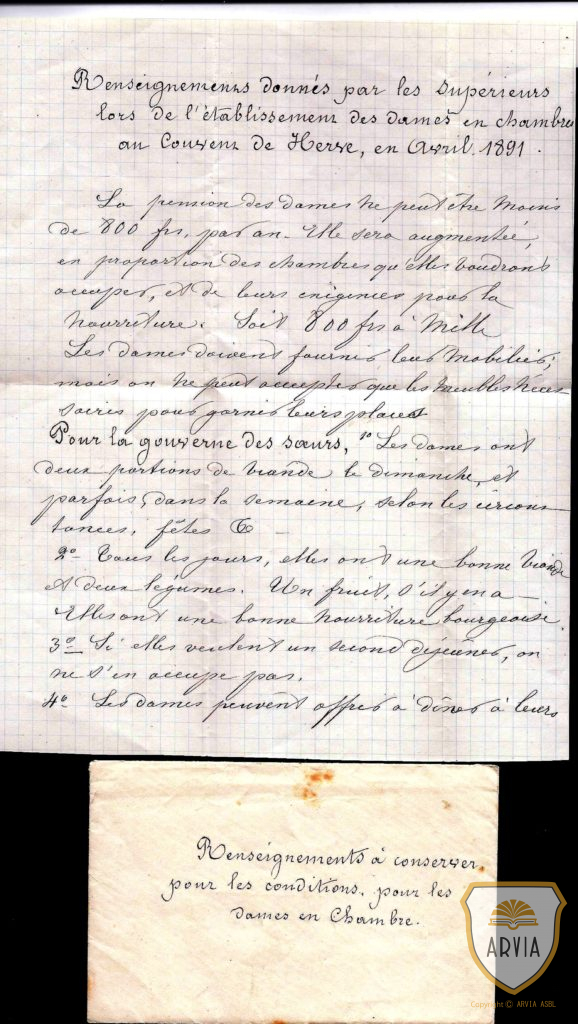 Renseignements donnés par les supérieurs
lors de l'établissement des dames en chambres
au Couvent de Herve, en Avril 1891.
La pension des dames ne peut être moins
de 800 frs, par an. Elle sera augmentée,
en proportion des chambres qu'elles voudront
occuper, et de leurs exigences pour la
nourriture. Soit 800 frs à Mille
Les dames doivent fournir leur mobilier;
mais on ne peut accepter que les meubles néces-
saires pour garnir leurs places
Pour la gouverne des sœurs, 1º Les dames ont
deux portions de viande le dimanche, et
parfois, dans la semaine, selon les circons-
tances, fêtes &
2º Tous les jours, elles ont une bonne viande
et deux légumes. Un fruit, s'il y en a —
Elles ont une bonne nourriture bourgeoise.
3º Si elles veulent un second déjeuner, on
ne s'en occupe pas.
4º Les dames peuvent offrir à dîner à leurs
Renseignements à conserver,
pour les conditions, pour les
dames en Chambre.
ARVIA
Copyright © ARVIA ASBL